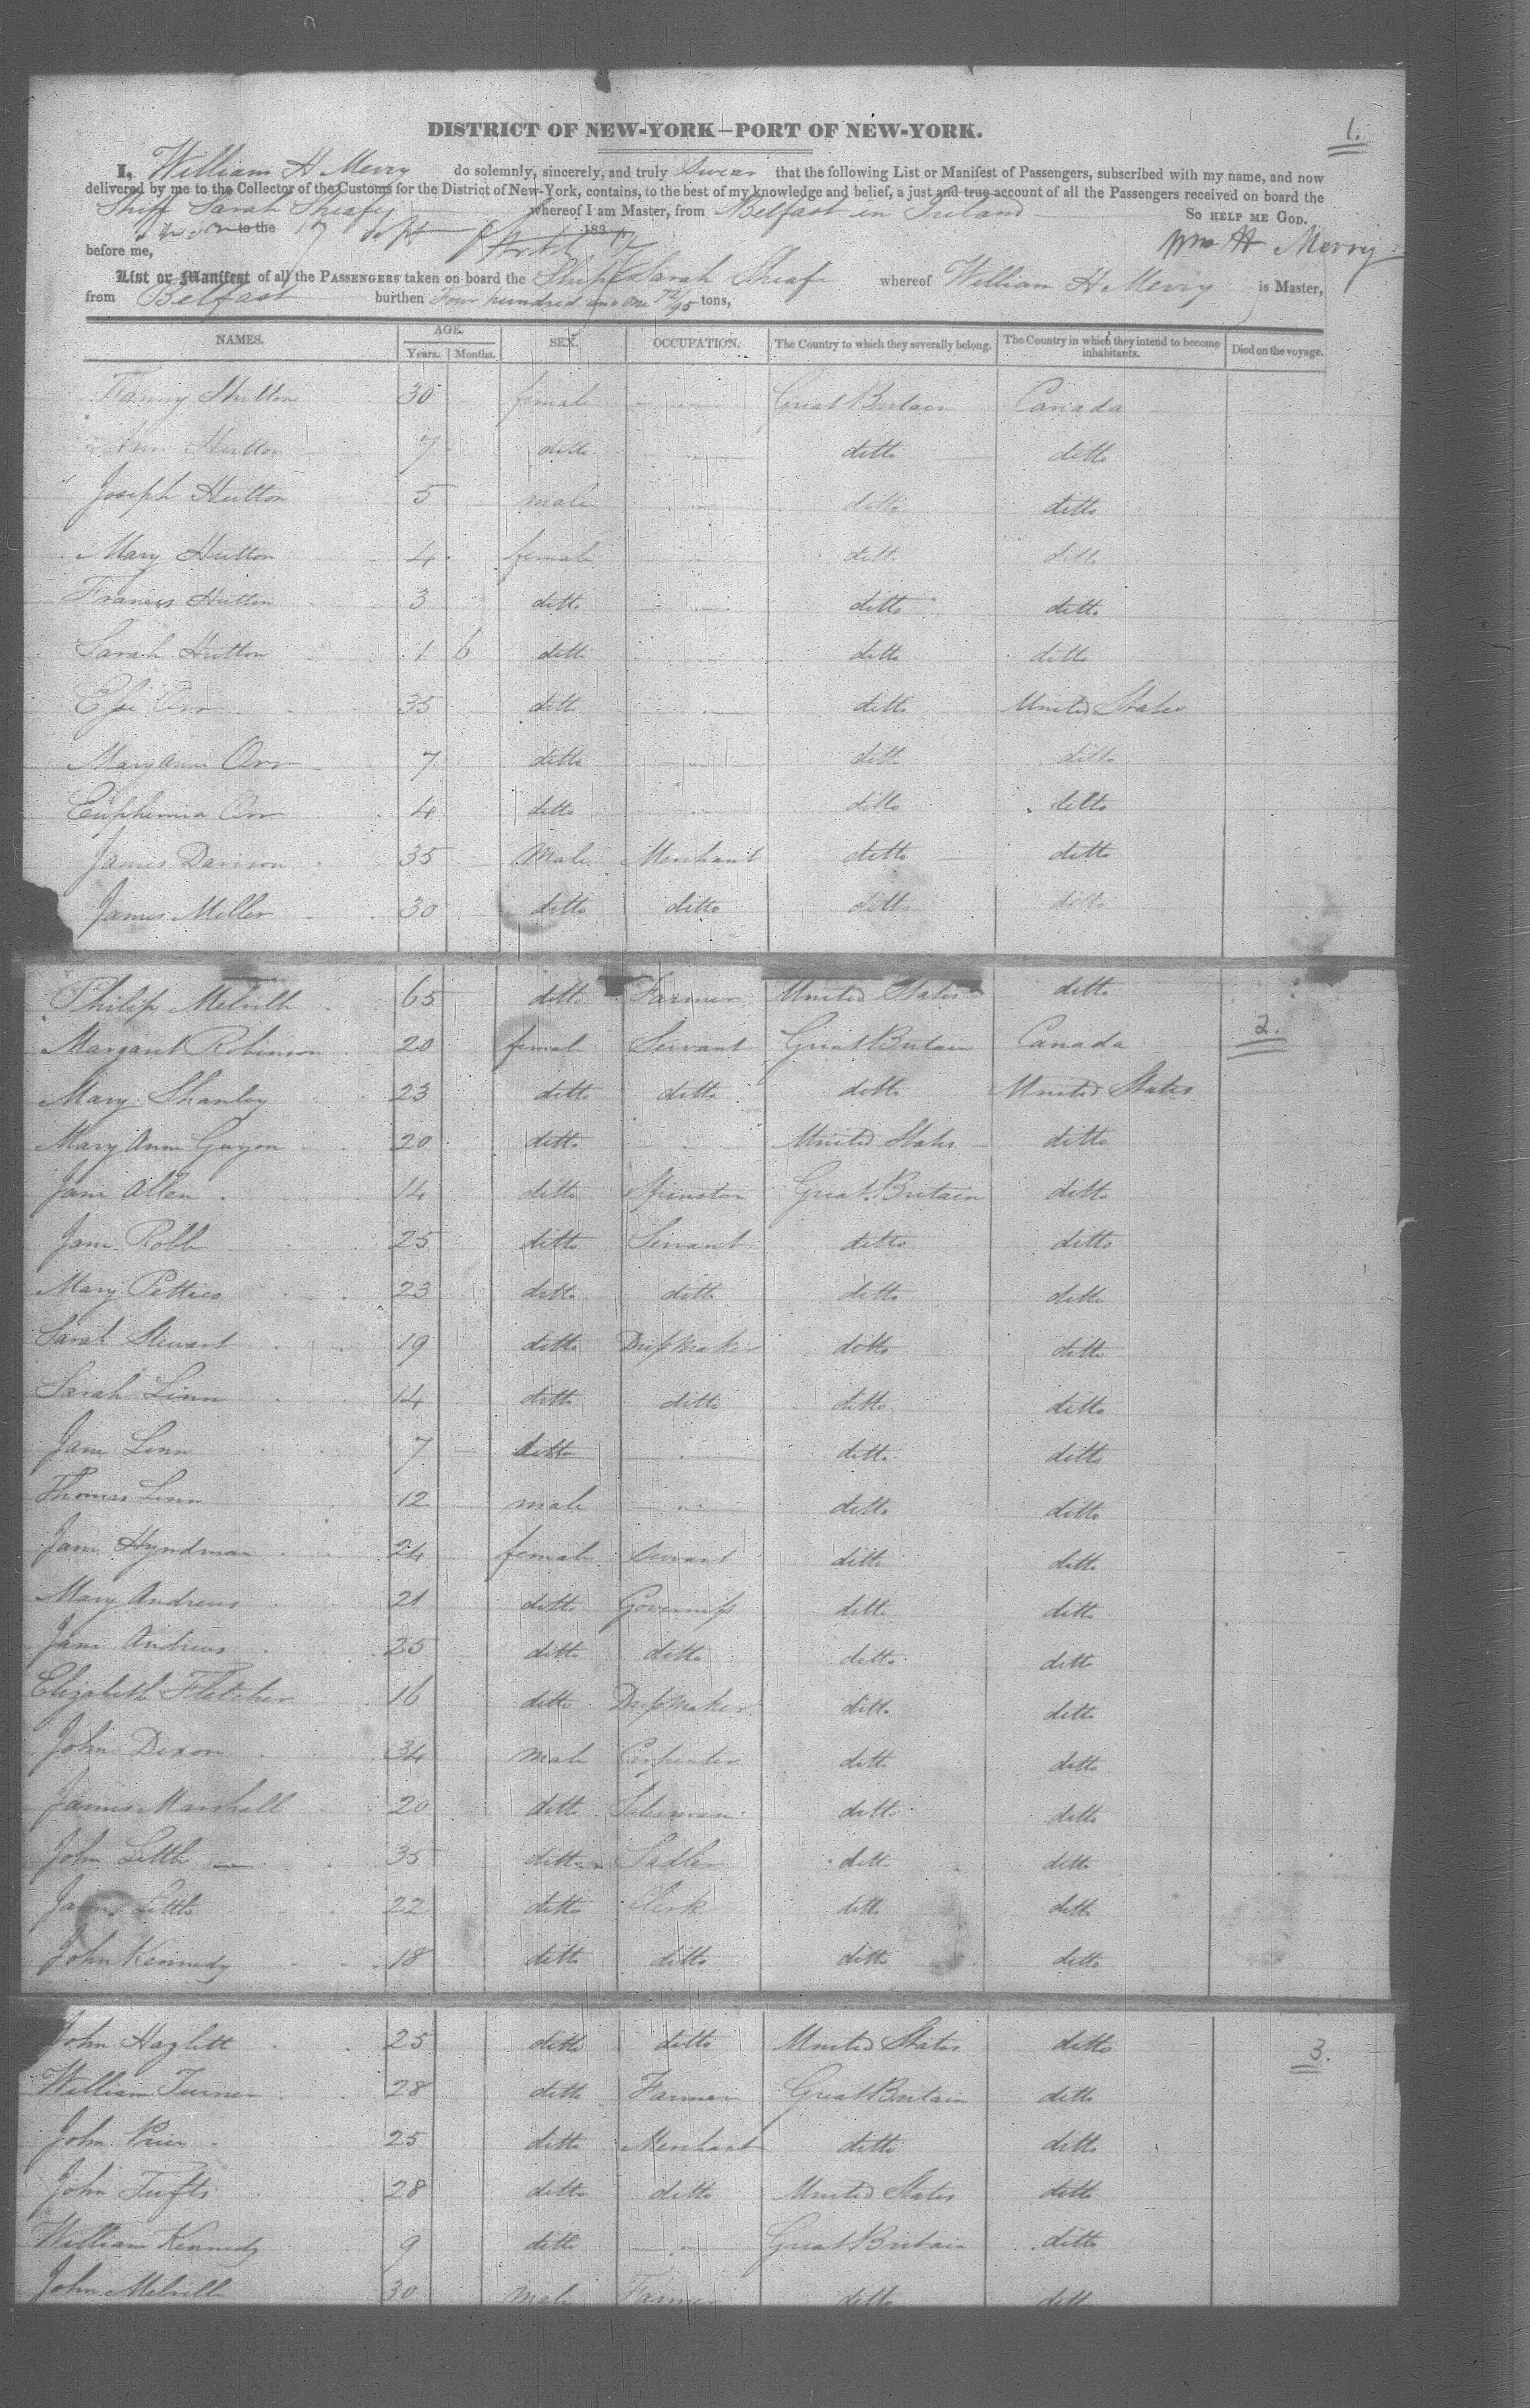 1.
DISTRICT OF NEW-YORK—PORT OF NEW-YORK.
I, William H Merry do solemnly, sincerely, and truly swear that the following List or Manifest of Passengers, subscribed with my name, and now
delivered by me to the Collector of the Customs for the District of New-York, contains, to the best of my knowledge and belief, a just and true account of all the Passengers received on board the
Ship Sarah Sheafe whereof I am Master, from Belfast in Ireland
So HELP ME GOD.
to the 17 Sept 183
before me, Wm H Merry
List or Manifest of all the PASSENGERS taken on board the Ship Sarah Sheafe whereof William H Merry is Master,
from Belfast burthen Four hundred and one 72/95 tons,
NAMES. AGE. SEX. OCCUPATION. The Country to which they severally belong. The Country in which they intend to become inhabitants. Died on the voyage.
Years. Months.
Fanny Hutton 30 female Great Britain Canada
Ann Hutton 7 ditto ditto ditto
Joseph Hutton 5 male ditto ditto
Mary Hutton 4 female ditto ditto
Frances Hutton 3 ditto ditto ditto
Sarah Hutton 1 6 ditto ditto ditto
Orr 35 ditto ditto United States
Mary Ann Orr 7 ditto ditto ditto
Euphemia Orr 4 ditto ditto ditto
James Davison 35 Male Merchant ditto ditto
James Miller 30 ditto ditto ditto ditto
Philip Melvill 65 ditto Farmer United States ditto
2.
Margaret Robinson 20 female Servant Great Britain Canada
Mary Shanley 23 ditto ditto ditto United States
Mary Ann Guyon 20 ditto United States ditto
Jane Allen 14 ditto Spinster Great Britain ditto
Jane Robb 25 ditto Servant ditto ditto
Mary Pettico 23 ditto ditto ditto ditto
Sarah Stewart 19 ditto Dressmaker ditto ditto
Sarah Linn 14 ditto ditto ditto ditto
Jane Linn 7 ditto ditto ditto
Thomas Linn 12 male ditto ditto
Jane Hyndman 24 female Servant ditto ditto
Mary Andrews 21 ditto Governess ditto ditto
Jane Andrews 25 ditto ditto ditto ditto
Elizabeth Fletcher 16 ditto Dressmaker ditto ditto
John Dixon 34 Male Carpenter ditto ditto
James Marshall 20 ditto Salesman ditto ditto
John Little 35 ditto Sadler ditto ditto
James Little 22 ditto Clerk ditto ditto
John Kennedy 18 ditto ditto ditto ditto
John Hazlett 25 ditto ditto United States ditto
3.
William Turner 28 ditto Farmer Great Britain ditto
John Price 25 ditto Merchant ditto ditto
John Tufts 28 ditto ditto United States ditto
William Kennedy 9 ditto Great Britain ditto
John Melvill 30 male Farmer ditto ditto